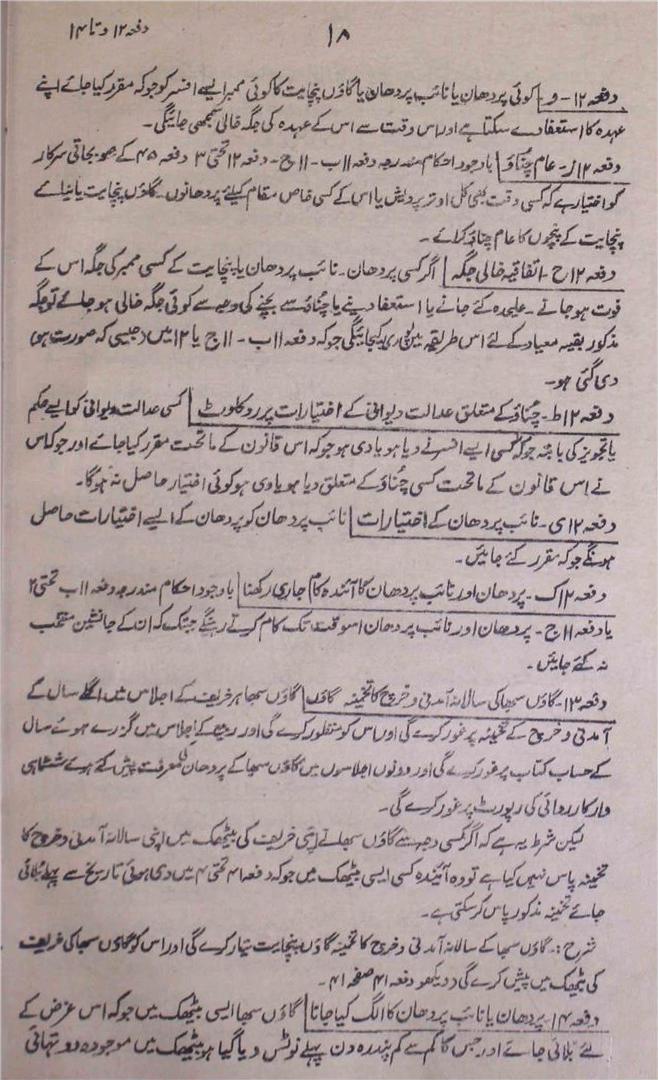 ۱۸
دفعہ ۱۲ و تا ۱۴
دفعہ ۱۲- و- کوئی پردھان یا نائب پردھان یا گاؤں پنچایت کا کوئی ممبر ایسے افسر کو جو کہ مقرر کیا جائے اپنے
عہدہ کا استعفا دے سکتا ہے اور اس وقت سے اس کے عہدہ کی جگہ خالی سمجھی جائیگی۔
دفعہ ۱۲ ز- عام چناؤ باوجود احکام مندرجہ دفعہ ۱۱ ب- ۱۱ ج- دفعہ ۱۲ تحتی ۳ دفعہ ۴۵ کے صوبجاتی سرکار
کو اختیار ہے کہ کسی وقت بھی کل اوتر پردیش یا اس کے کسی خاص مقام کیلئے پردھانوں۔ گاؤں پنچایت یا نیائے
پنچایت کے پنچوں کا عام چناؤ کرائے۔
دفعہ ۱۲ ح- اتفاقیہ خالی جگہ اگر کسی پردھان۔ نائب پردھان یا پنچایت کے کسی ممبر کی جگہ اس کے
فوت ہو جانے۔ علیحدہ کئے جانے یا استعفا دینے یا چناؤ سے بچنے کی وجہ سے کوئی جگہ خالی ہو جائے تو جگہ
مذکور بقیہ معیاد کے لئے اس طریقہ میں پوری کیجائیگی جو کہ دفعہ ۱۱ ب- ۱۱ ج یا ۱۲ میں (جیسی کہ صورت ہو)
دی گئی ہو۔
دفعہ ۱۲ ط- چناؤ کے متعلق عدالت دیوانی کے اختیارات پر روکاوٹ کسی عدالت دیوانی کو ایسے حکم
یا تجویز کی بابتہ جو کہ کسی ایسے افسر نے دیا ہو یا دی ہو جو کہ اس قانون کے ماتحت مقرر کیا جائے اور جو کہ اس
نے اس قانون کے ماتحت کسی چناؤ کے متعلق دیا ہو یا دی ہو کوئی اختیار حاصل نہ ہوگا۔
دفعہ ۱۲ ی- نائب پردھان کے اختیارات نائب پردھان کو پردھان کے ایسے اختیارات حاصل
ہونگے جو کہ مقرر کئے جائیں۔
دفعہ ۱۲ ک- پردھان اور نائب پردھان کا آئندہ کام جاری رکھنا باوجود احکام مندرجہ دفعہ ۱۱ ب تحتی ۲
یا دفعہ ۱۱ ج- پردھان اور نائب پردھان اسوقت تک کام کرتے رہینگے جبتک کہ ان کے جانشین منتخب
نہ کئے جائیں۔
دفعہ ۱۳- گاؤں سبھا کی سالانہ آمدنی و خرچ کا تخمینہ گاؤں گاؤں سبھا ہر خریف کے اجلاس میں اگلے سال کے
آمدنی و خرچ کے تخمینہ پر غور کرے گی اور اس کو منظور کرے گی اور ربیع کے اجلاس میں گزرے ہوئے سال
کے حساب کتاب پر غور کرے گی اور دونوں اجلاسوں میں گاؤں سبھا کے پردھان کی معرفت پیش کئے ہوئے ششماہی
وار کارروائی کی رپورٹ پر غور کرے گی۔
لیکن شرط یہ ہے کہ اگر کسی وجہ سے گاؤں سبھا نے اپنی خریف کی بیٹھک میں اپنی سالانہ آمدنی و خرچ کا
تخمینہ پاس نہیں کیا ہے تو وہ آئندہ کسی ایسی بیٹھک میں جو کہ دفعہ ۴۱ تحتی ۴ میں دی ہوئی تاریخ سے پہلے بلائی
جائے تخمینہ مذکور پاس کر سکتی ہے۔
شرح:۔ گاؤں سبھا کے سالانہ آمدنی و خرچ کا تخمینہ گاؤں پنچایت تیار کرے گی اور اس کو گاؤں سبھا کی خریف
کی بیٹھک میں پیش کرے گی دیکھو دفعہ ۴۱ صفحہ ۴۱۔
دفعہ ۱۴- پردھان یا نائب پردھان کا الگ کیا جانا گاؤں سبھا ایسی بیٹھک میں جو کہ اس غرض کے
لئے بلائی جائے اور جس کا کم سے کم پندرہ دن پہلے نوٹس دیا گیا ہو بیٹھک میں موجودہ دو تہائی